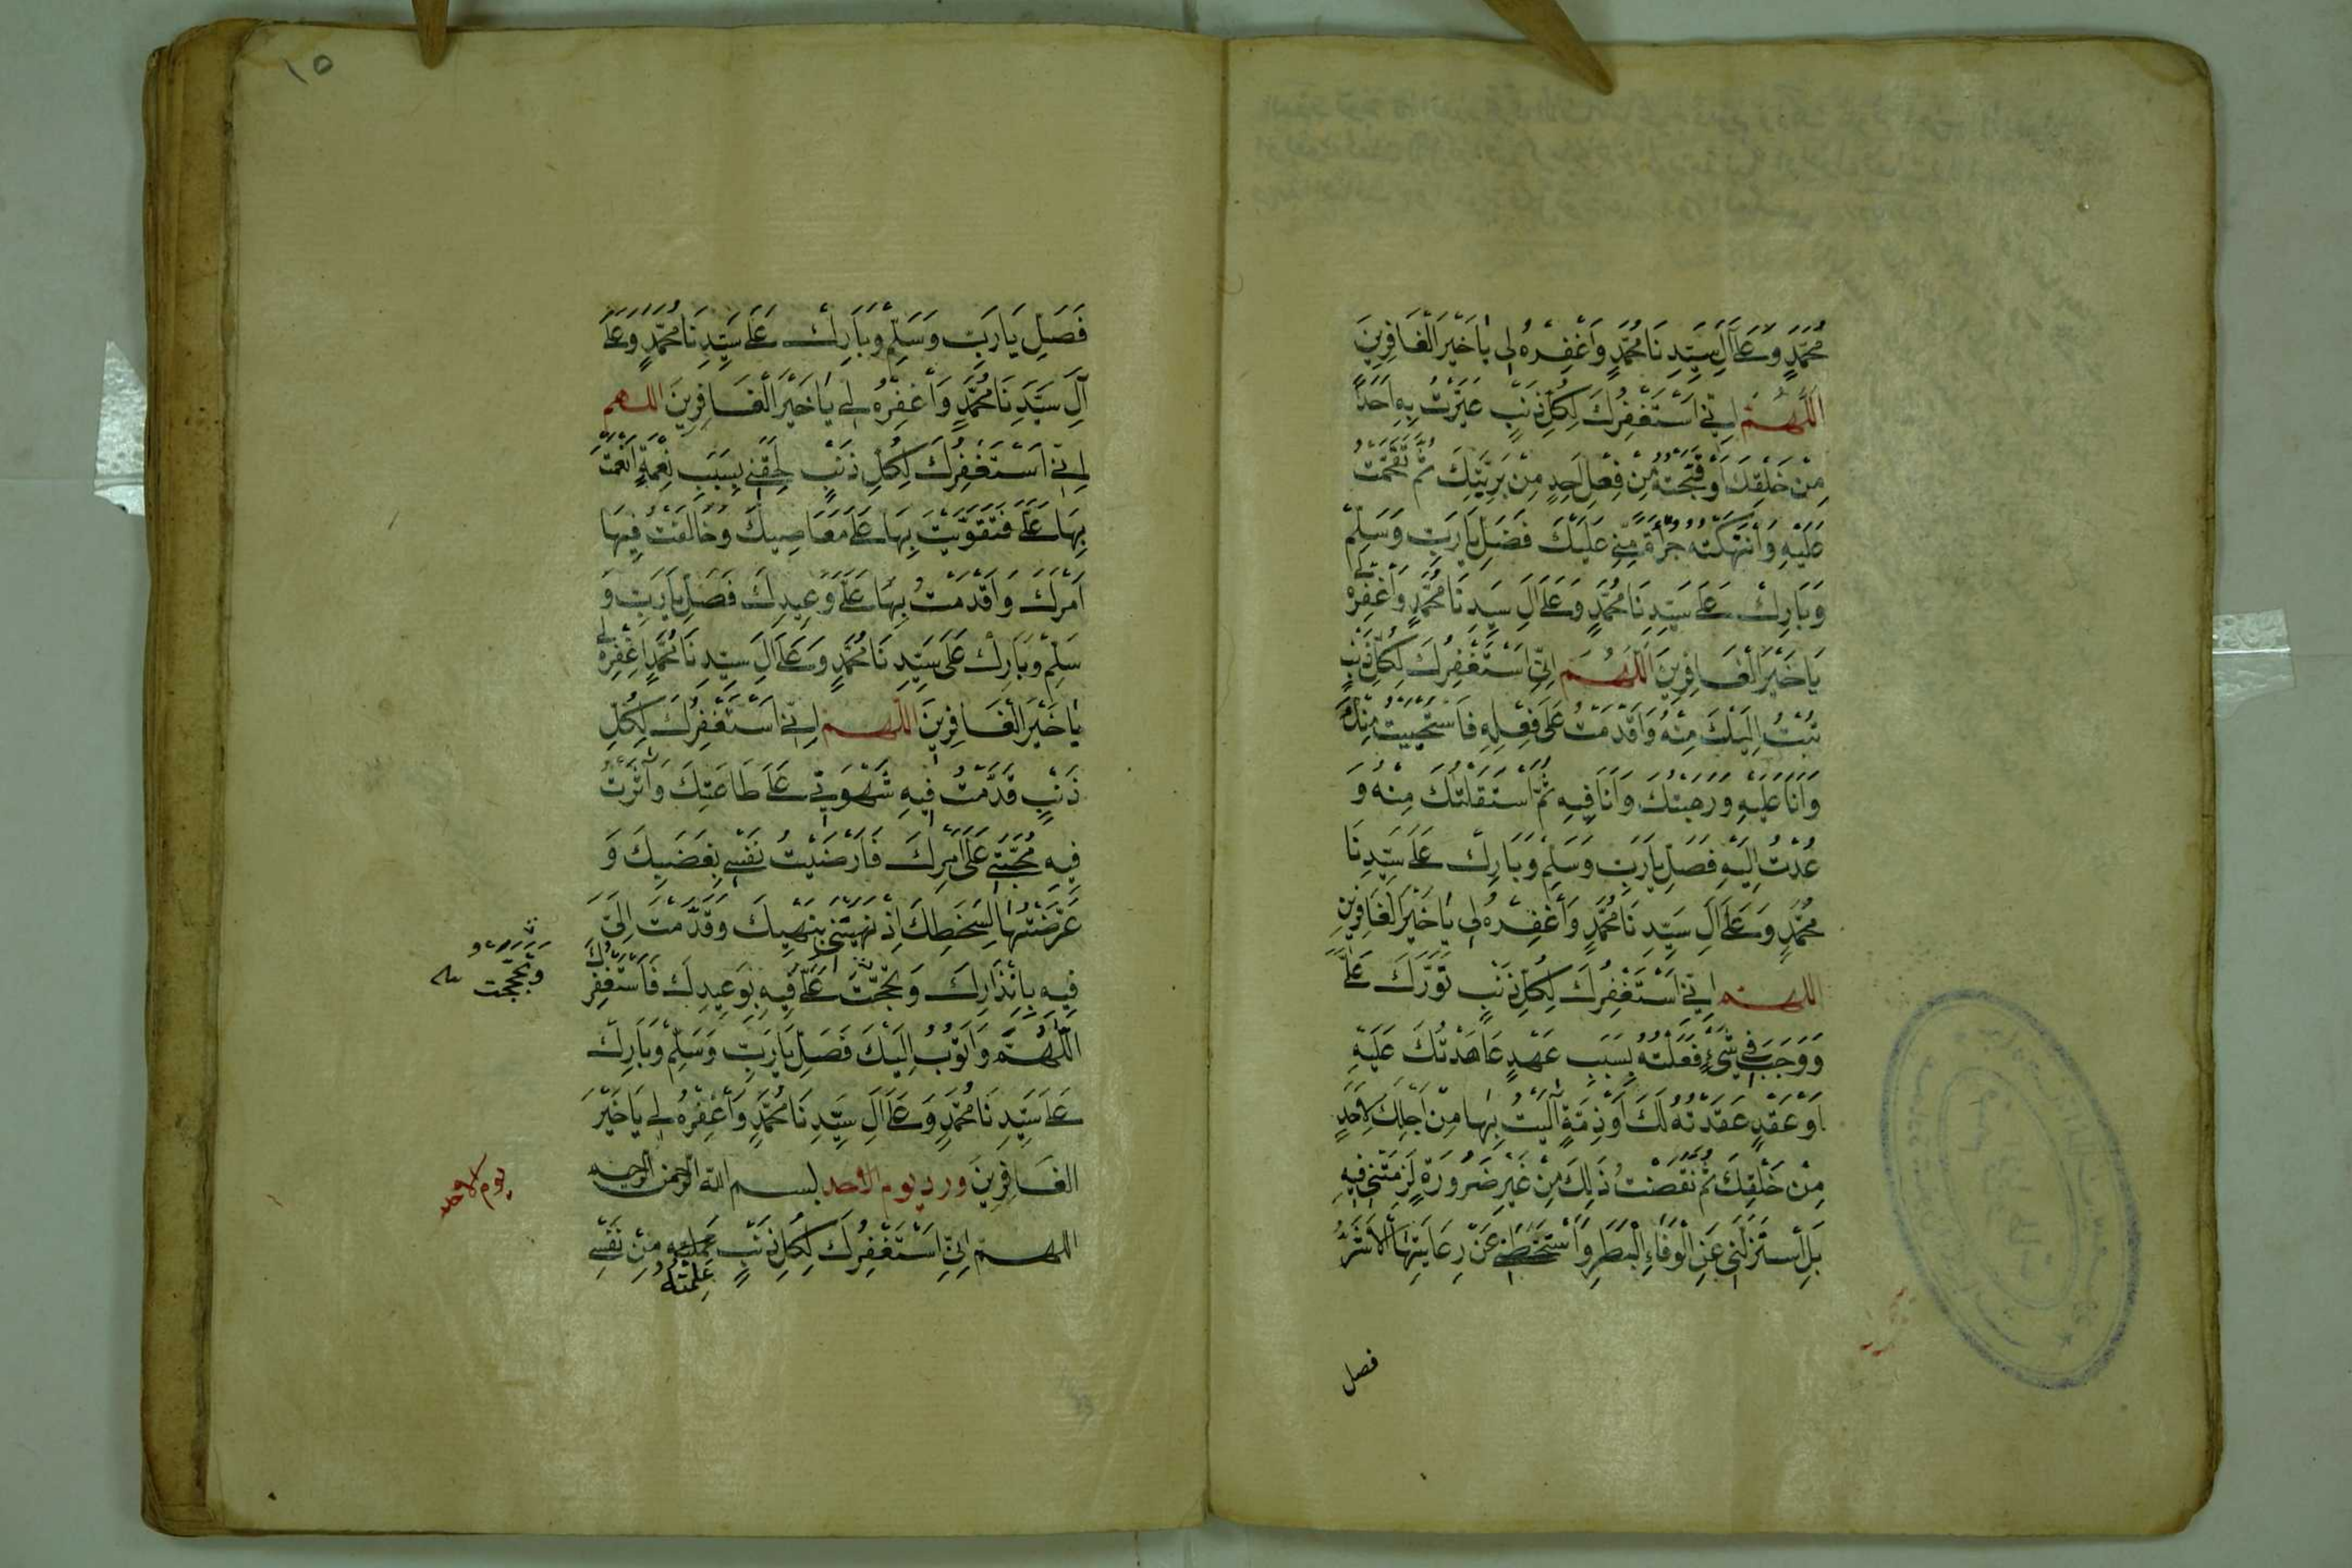 مُحَمَّدٍ وَعَلَى آلِ سَيِّدِنَا مُحَمَّدٍ وَاَغْفِرْهُ لِي يَاخَيْرَ الْغَافِرِينَ
اَللّٰهُمَّ اِنِّي اَسْتَغْفِرُكَ لِكُلِّ ذَنْبٍ عَيَّرْتُ بِهِ اَحَدًا
مِنْ خَلْقِكَ اَوْ قَبَّحْتُهُ مِنْ فِعْلِ اَحَدٍ مِنْ بَرِيَّتِكَ ثُمَّ تَقَحَّمْتُ
عَلَيْهِ وَانْتَهَكْتُهُ جُرْأَةً مِنِّي عَلَيْكَ فَصَلِّ يَارَبِّ وَسَلِّمْ
وَبَارِكْ عَلَى سَيِّدِنَا مُحَمَّدٍ وَعَلَى آلِ سَيِّدِنَا مُحَمَّدٍ وَاغْفِرْهُ لِي
يَاخَيْرَ الْغَافِرِينَ اَللّٰهُمَّ اِنِّي اَسْتَغْفِرُكَ لِكُلِّ ذَنْبٍ
تُبْتُ اِلَيْكَ مِنْهُ وَاَقْدَمْتُ عَلَى فِعْلِهِ فَاسْتَحْيَيْتُ مِنْكَ
وَاَنَا عَلَيْهِ وَرَهِبْتُكَ وَاَنَا فِيهِ ثُمَّ اسْتَقَلْتُكَ مِنْهُ وَ
عُدْتُ اِلَيْهِ فَصَلِّ يَارَبِّ وَسَلِّمْ وَبَارِكْ عَلَى سَيِّدِنَا
مُحَمَّدٍ وَعَلَى آلِ سَيِّدِنَا مُحَمَّدٍ وَاَغْفِرْهُ لِي يَاخَيْرَ الْغَافِرِينَ
اللهم اِنِّي اَسْتَغْفِرُكَ لِكُلِّ ذَنْبٍ تَوَرَّكَ عَلَيَّ
وَوَجَبَ فِي شَيْءٍ فَعَلْتُهُ بِسَبَبِ عَهْدٍ عَاهَدْتُكَ عَلَيْهِ
اَوْ عَقْدٍ عَقَدْتُهُ لَكَ اَوْ ذِمَّةٍ آلَيْتُ بِهَا مِنْ اَجْلِكَ لِاَحَدٍ
مِنْ خَلْقِكَ ثُمَّ نَقَضْتُ ذَلِكَ مِنْ غَيْرِ ضَرُورَةٍ لَزِمَتْنِي فِيهِ
بَلِ اسْتَزَلَّنِي عَنِ الْوَفَاءِ الْبَطَرُ وَاَسْتَخَطَّنِي عَنْ رِعَايَتِهَا الْاَشَرُ
فصل
١٥
فَصَلِّ يَارَبِّ وَسَلِّمْ وَبَارِكْ عَلَى سَيِّدِنَا مُحَمَّدٍ وَعَلَى
آلِ سَيِّدِنَا مُحَمَّدٍ وَاَغْفِرْهُ لِي يَاخَيْرَ الْغَافِرِينَ اللهم
اِنِّي اَسْتَغْفِرُكَ لِكُلِّ ذَنْبٍ لَحِقَنِي بِسَبَبِ نِعْمَةٍ اَنْعَمْتَ
بِهَا عَلَيَّ فَتَقَوَّيْتُ بِهَا عَلَى مَعَاصِيكَ وَخَالَفْتُ فِيهَا
اَمْرَكَ وَاَقْدَمْتُ بِهَا عَلَى وَعِيدِكَ فَصَلِّ يَارَبِّ وَ
سَلِّمْ وَبَارِكْ عَلَى سَيِّدِنَا مُحَمَّدٍ وَعَلَى آلِ سَيِّدِنَا مُحَمَّدٍ اغْفِرْهُ لِي
يَاخَيْرَ الْغَافِرِينَ اللّهم اِنِّي اَسْتَغْفِرُكَ لِكُلِّ
ذَنْبٍ قَدَّمْتُ فِيهِ شَهْوَتِي عَلَى طَاعَتِكَ وَآثَرْتُ
فِيهِ مَحَبَّتِي عَلَى اَمْرِكَ فَاَرْضَيْتُ نَفْسِي بِغَضَبِكَ وَ
عَرَّضْتُهَا لِسَخَطِكَ اِذْ نَهَيْتَنِي بِنَهْيِكَ وَقَدَّمْتَ اِلَيَّ
فِيهِ بِاِنْذَارِكَ وَتَحَجَّجْتَ عَلَيَّ فِيهِ بِوَعِيدِكَ فَاَسْتَغْفِرُكَ
وَتَحَجَّجْتَ
اَللّٰهُمَّ وَاَتُوبُ اِلَيْكَ فَصَلِّ يَارَبِّ وَسَلِّمْ وَبَارِكْ
عَلَى سَيِّدِنَا مُحَمَّدٍ وَعَلَى آلِ سَيِّدِنَا مُحَمَّدٍ وَاَغْفِرْهُ لِي يَاخَيْرَ
الْغَافِرِينَ ورد يوم الأحد بسم الله الرحمن الرحيم
يوم الاحد
اللهم اِنِّي اَسْتَغْفِرُكَ لِكُلِّ ذَنْبٍ عَمِلْتُهُ مِنْ نَفْسِي
عَلِمْتُهُ